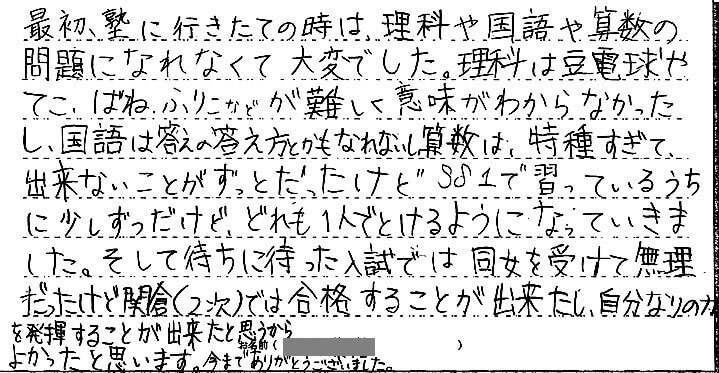 最初、塾に行きたての時は、理科や国語や算数の
問題になれなくて大変でした。理科は豆電球や
てこ、ばね、ふりこなどが難しく意味がわからなかった
し、国語は答えの答え方とかもなれないし算数は、特種すぎて、
出来ないことがずっとだったけどSS1で習っているうち
に少しずつだけど、どれも1人でとけるようになっていきま
した。そして待ちに待った入試では同女を受けて無理
だったけど関倉(2次)では合格することが出来たし、自分なりの力
を発揮することが出来たと思うから
お名前( )
よかったと思います。今までありがとうございました。